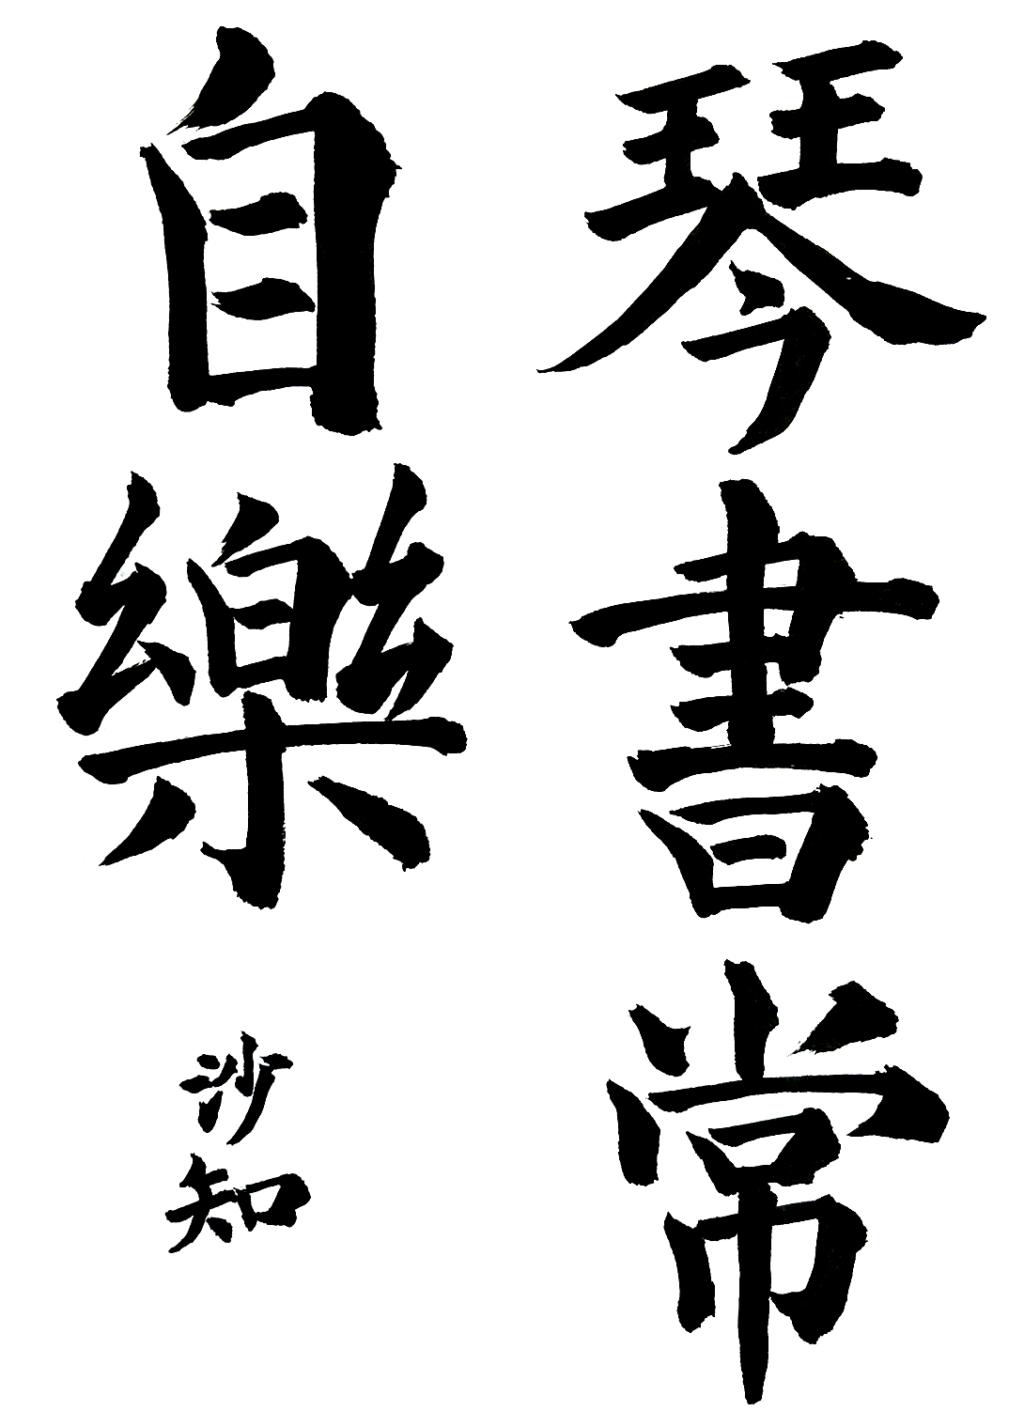 琴書常
自樂
沙知